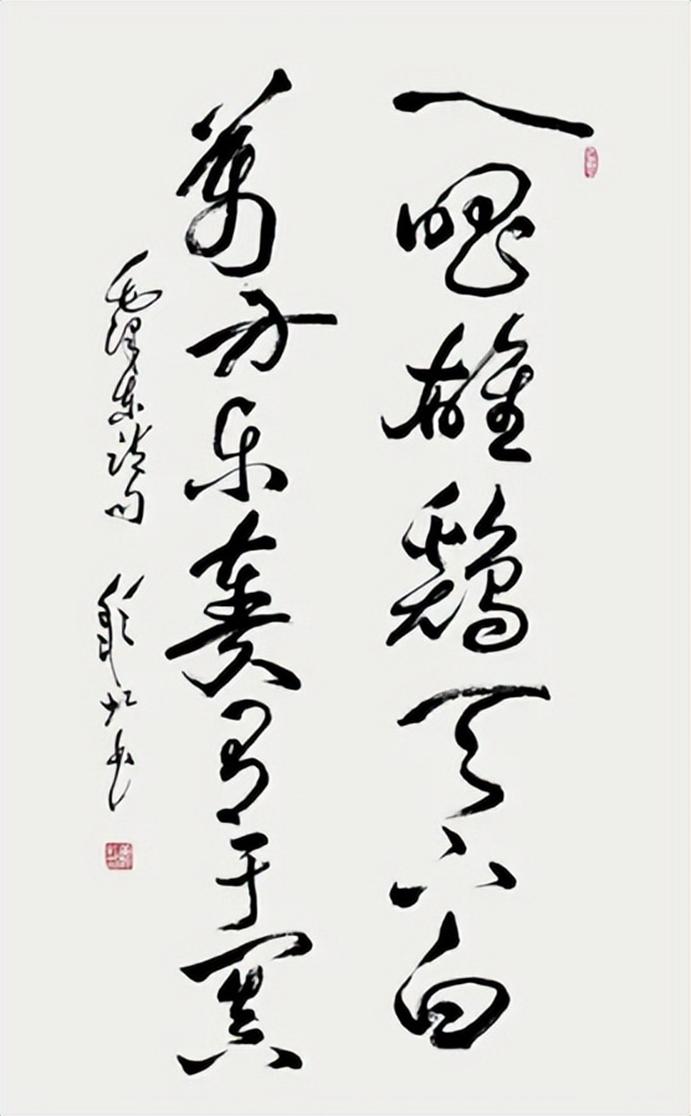 一唱雄鷄天下白
萬方乐奏有于阗
毛泽东诗句
书